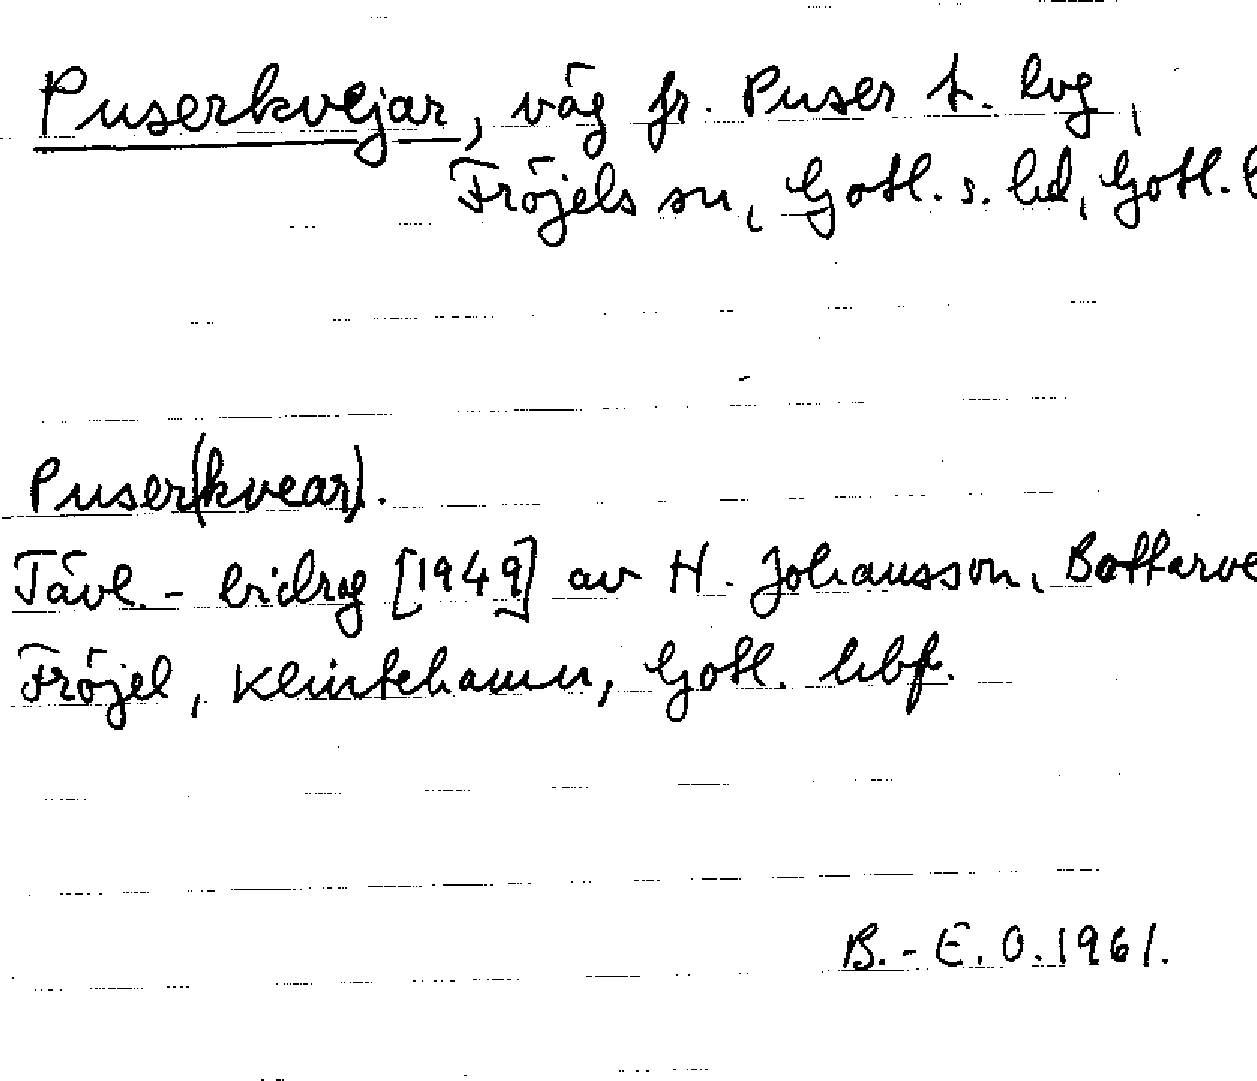 Puserkvejar, väg fr. Puser t. lvg,
Fröjels sn, Gotl. s. hd, Gotl. l
Puser(kvear).
Tävl.-bidrag [1949] av H. Johansson, Bottarve
Fröjel, Klintehamn, Gotl. hbf.
B.-E.O.1961.